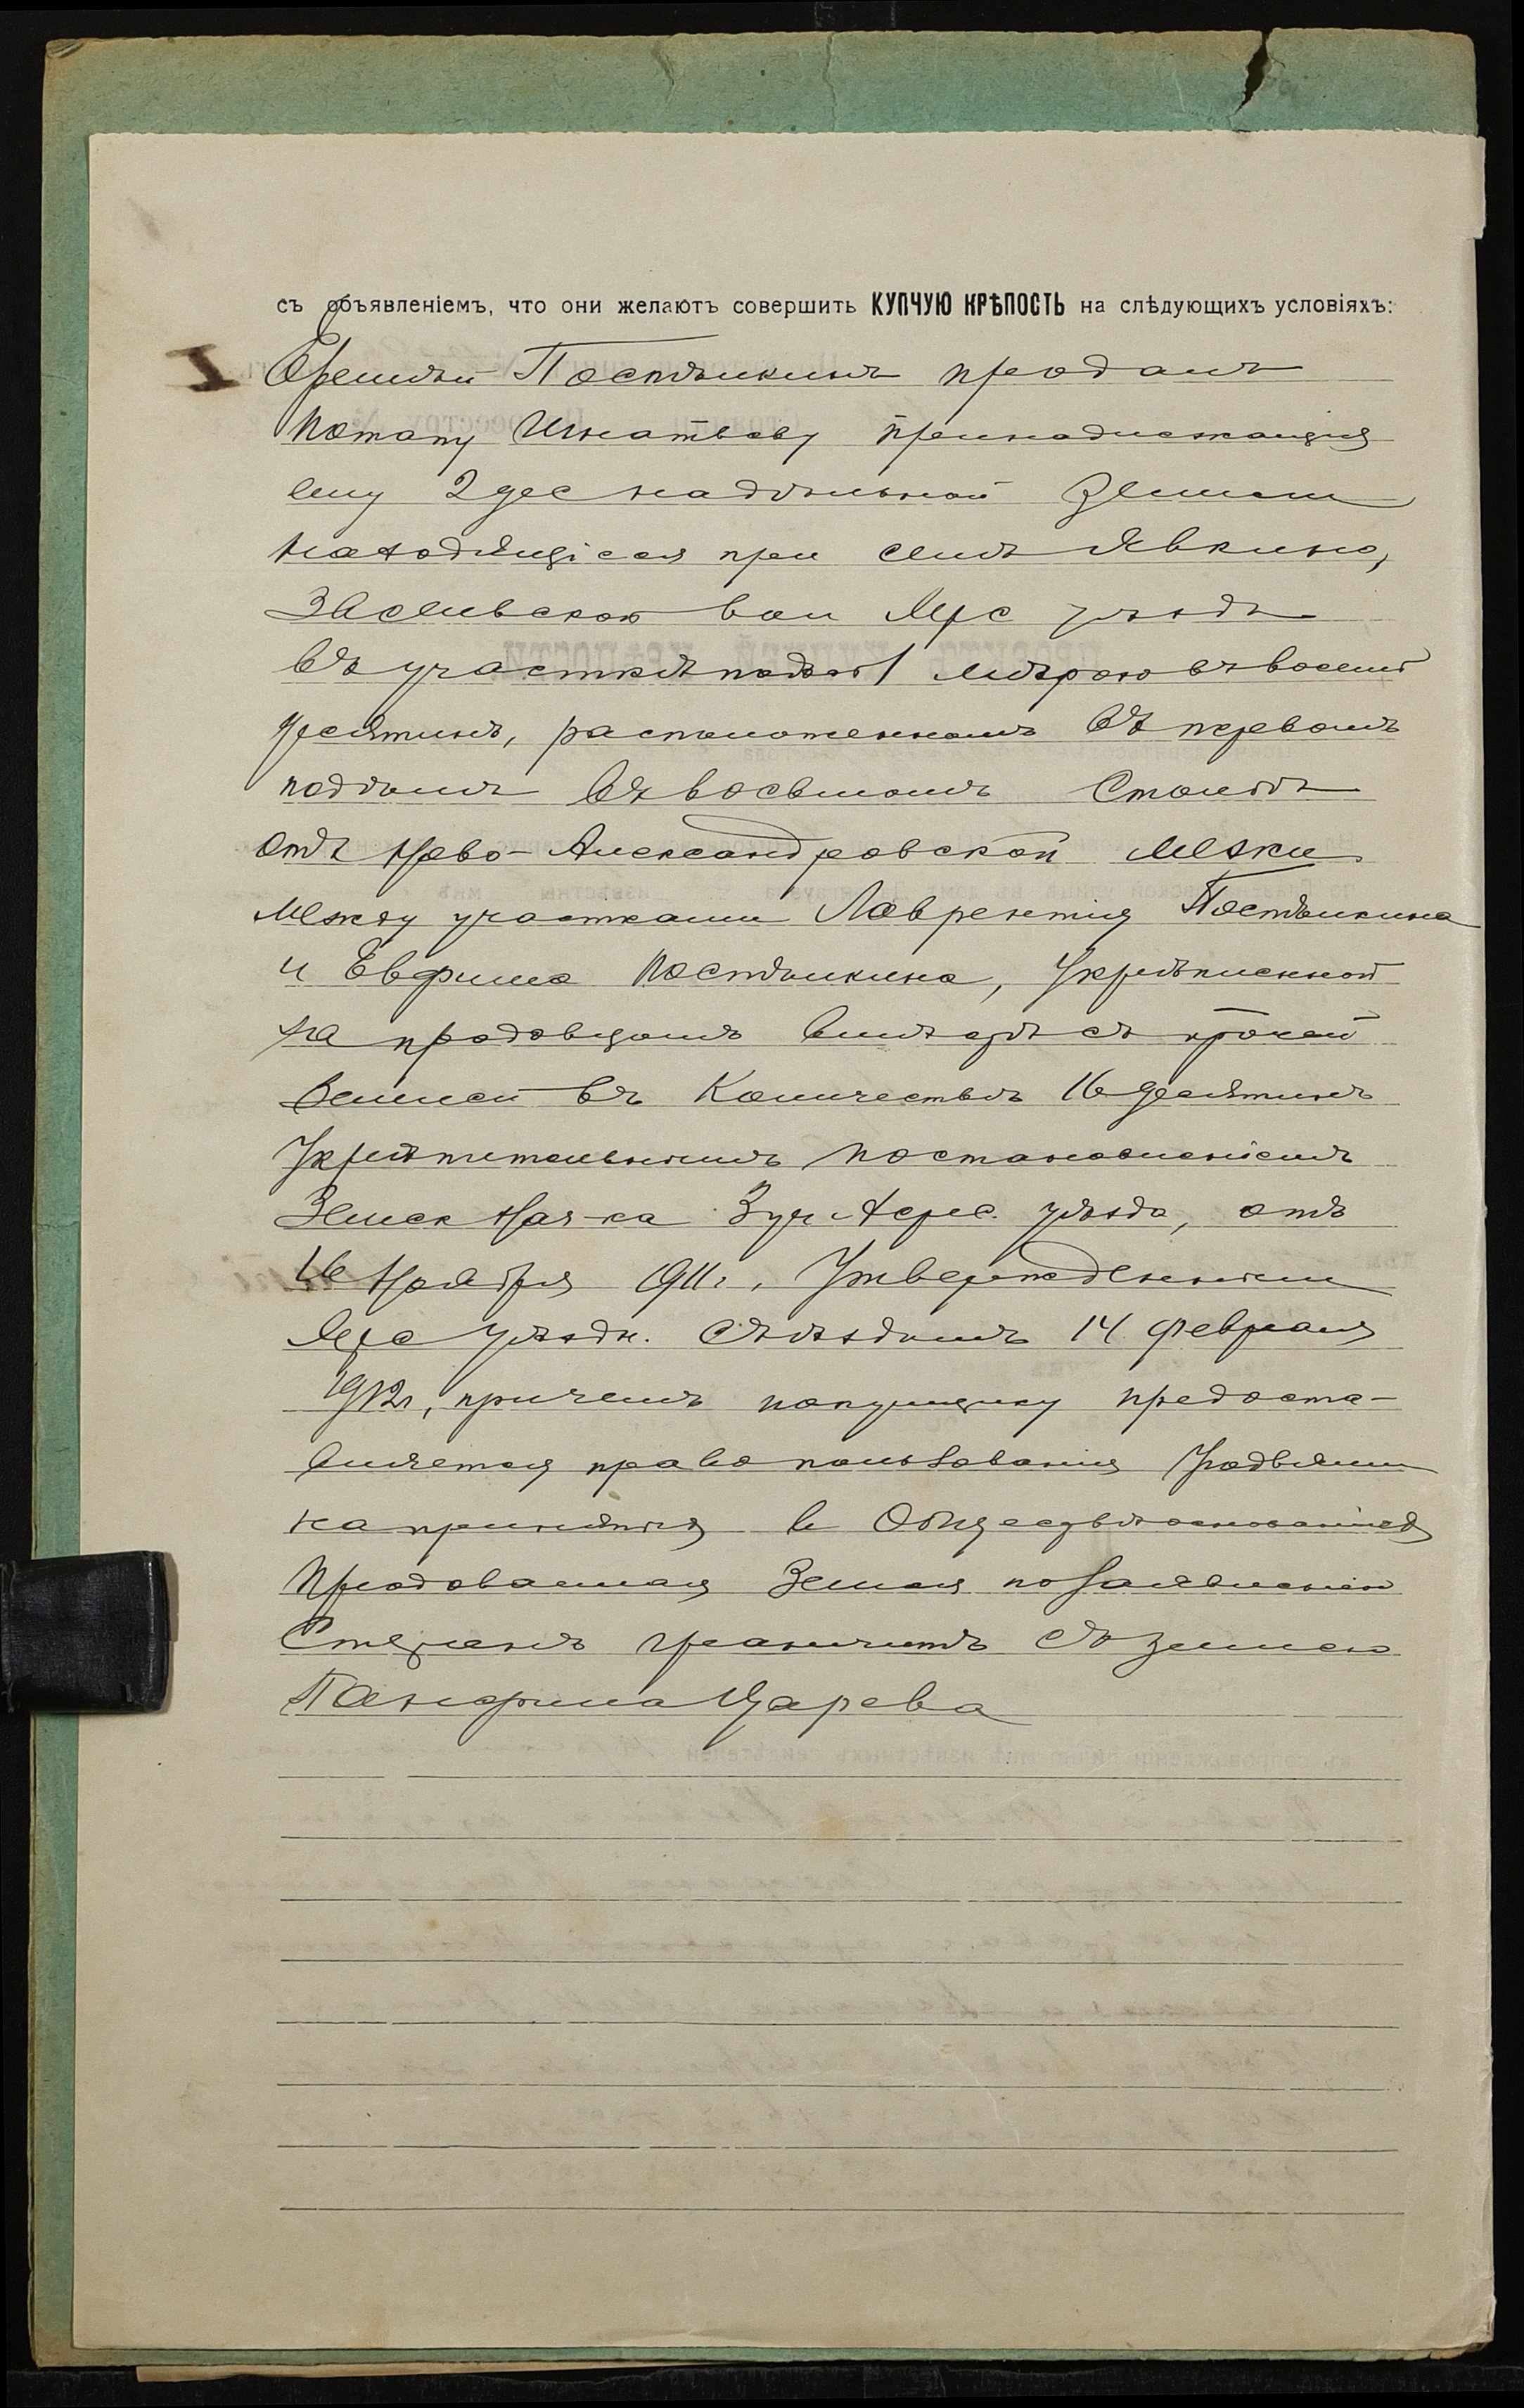 съ объявленіемъ, что они желаютъ совершить КУПЧУЮ КРѢПОСТЬ на слѣдующихъ условіяхъ:
I Еремѣй Постѣлкинъ продалъ
Потапу Игнатьеву принадлежащія
ему 2 дес надѣльной земли
находящіеся при селѣ Явкино,
Засельской вол Хрс уѣзда
въ участкѣ мѣрою въ восемь
десятинъ, расположенномъ въ первомъ
въ восьмомъ столбѣ
отъ Ново-Александровской межи
между участками Лаврентія Постѣлкина
и Евфима Постѣлкина, укрѣпленной
за продавцомъ вмѣстѣ съ прочей
землей въ количествѣ 16 десятинъ
укрѣпительнымъ постановленіемъ
Земск Нач-ка 3 уч Херс. уѣзда, отъ
16 Ноября 1911 г., утвержденнымъ
Херс уѣздн. съѣздомъ 14 февраля
1912 г, причемъ покупщику предоста-
вляется право пользованія
на принятыя в основанія
Продаваемая земля по заявленію
сторонъ граничитъ съ землею
Панфила Царева